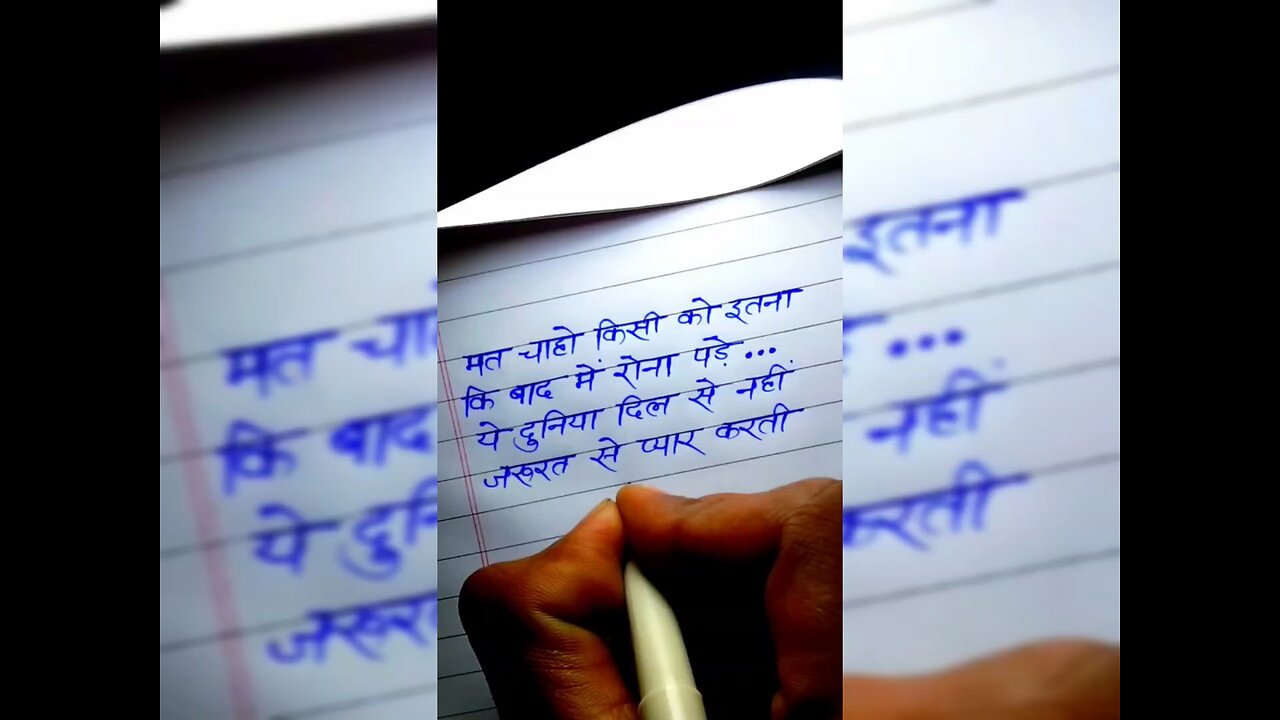 मत चाहो किसी को इतना
कि बाद में रोना पड़े ...
ये दुनिया दिल से नहीं
जरूरत से प्यार करती